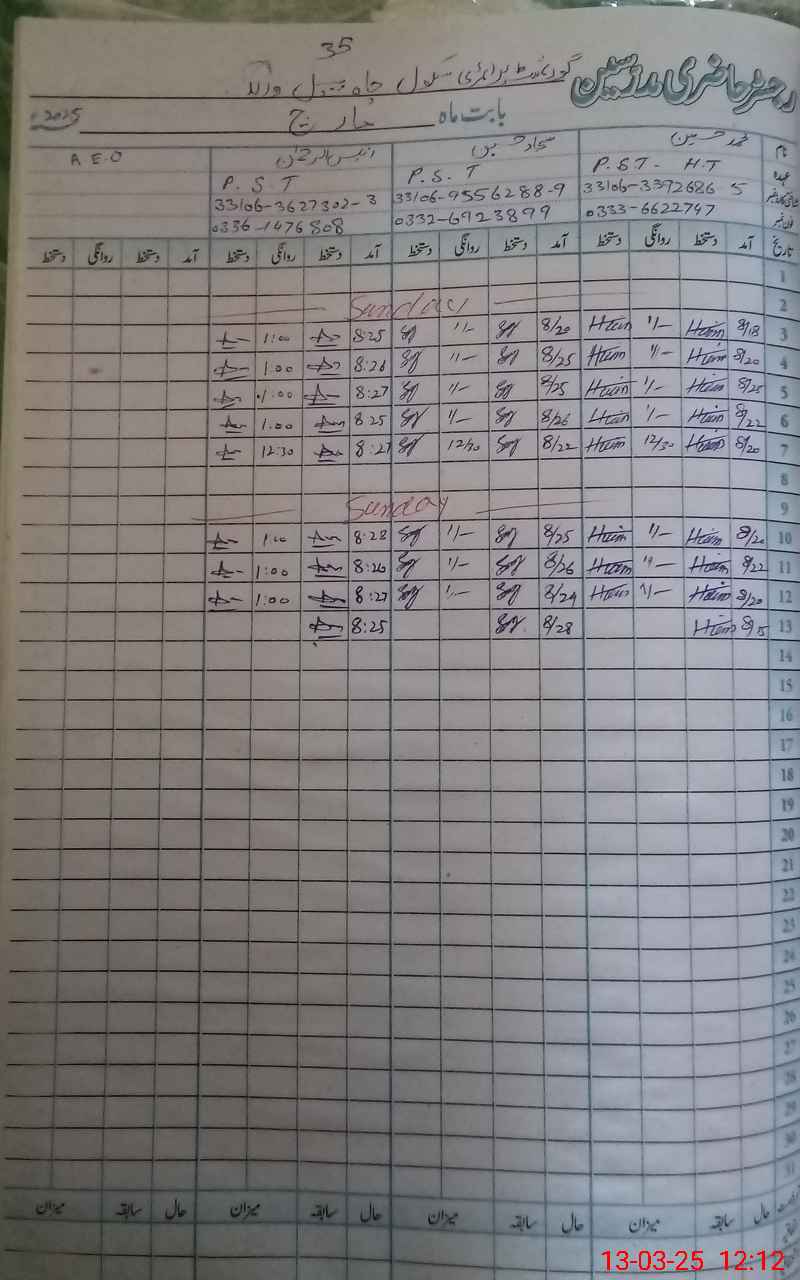 35
رجسٹر حاضری مدرسین گورنمنٹ پرائمری سکول چاہ
بابت ماہ مارچ 2025ء
نام محمد حسین سجاد حسین انیس الرحمٰن A.E.O
عہدہ P.ST- H.T P.S.T P.S.T
33106-3392686 5 33106-9556288-9 33106-3627302-3
فون نمبر 0333-6622747 0332-6923899 0336-1476808
تاریخ آمد دستخط روانگی دستخط آمد دستخط روانگی دستخط آمد دستخط روانگی دستخط آمد دستخط روانگی دستخط
1
2 Sunday
3 8/18 1/- 8/20 1/- 8:25 1:00
4 8/20 1/- 8/25 1/- 8:26 1:00
5 8/25 1/- 8/25 1/- 8:27 1:00
6 8/22 1/- 8/26 1/- 8:25 1:00
7 8/20 12/30 8/22 12/30 8:27 12:30
8
9 Sunday
10 8/20 1/- 8/25 1/- 8:28 1:00
11 8/22 1/- 8/26 1/- 8:26 1:00
12 8/20 1/- 8/29 1/- 8:27 1:00
13 8/15 8/28 8:25
14
15
16
17
18
19
20
21
22
23
24
25
26
27
28
29
30
31
حال سابقہ میزان حال سابقہ میزان حال سابقہ میزان حال سابقہ میزان
13-03-25 12:12